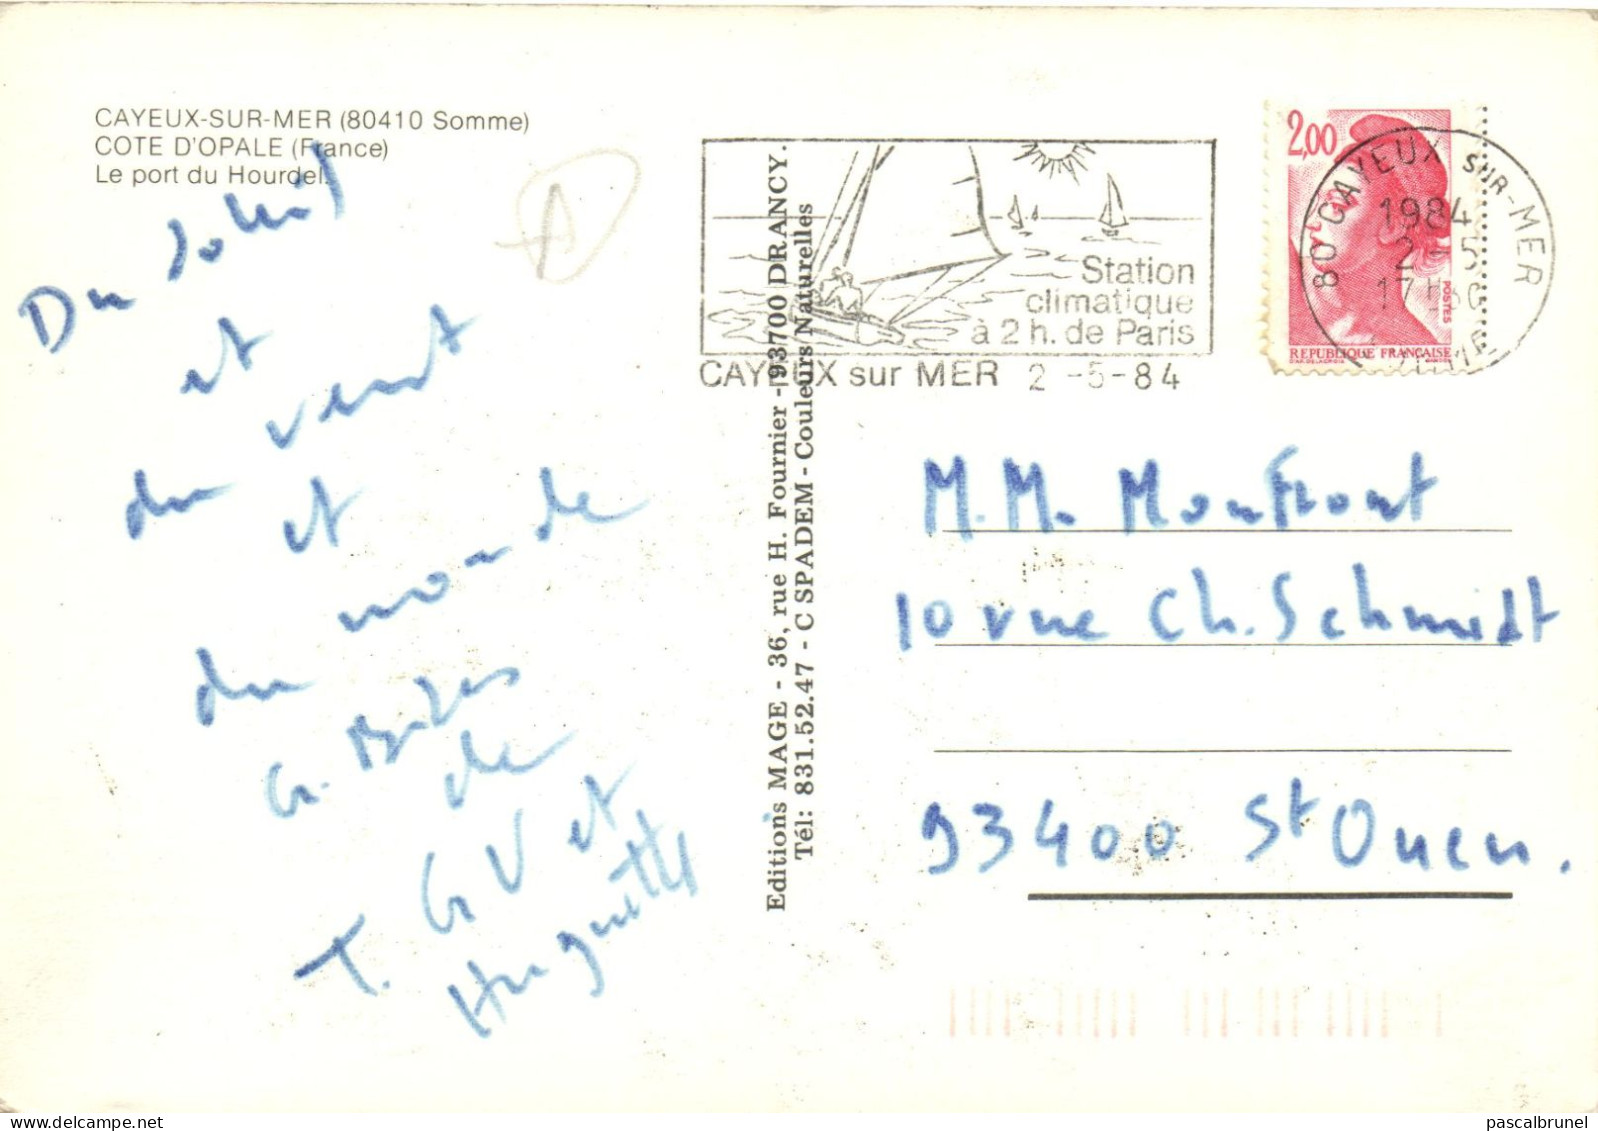 CAYEUX-SUR-MER (80410 Somme)
COTE D'OPALE (France)
Le port du Hourdel.
Du soleil
et
du vent
et
du monde
G. Bises
de
T. G V et
Huguette
Editions MAGE - 36, rue H. Fournier - 93700 DRANCY.
Tél: 831.52.47 - C SPADEM - Couleurs Naturelles
Station
climatique
à 2 h. de Paris
CAYEUX sur MER 2 -5-84
2,00
POSTES
REPUBLIQUE FRANÇAISE
80 CAYEUX SUR-MER
1984
2 -5
17 H30
SOMME
M. M. Monfront
10 rue Ch. Schmidt
93400 St Ouen.
pascalbrunel